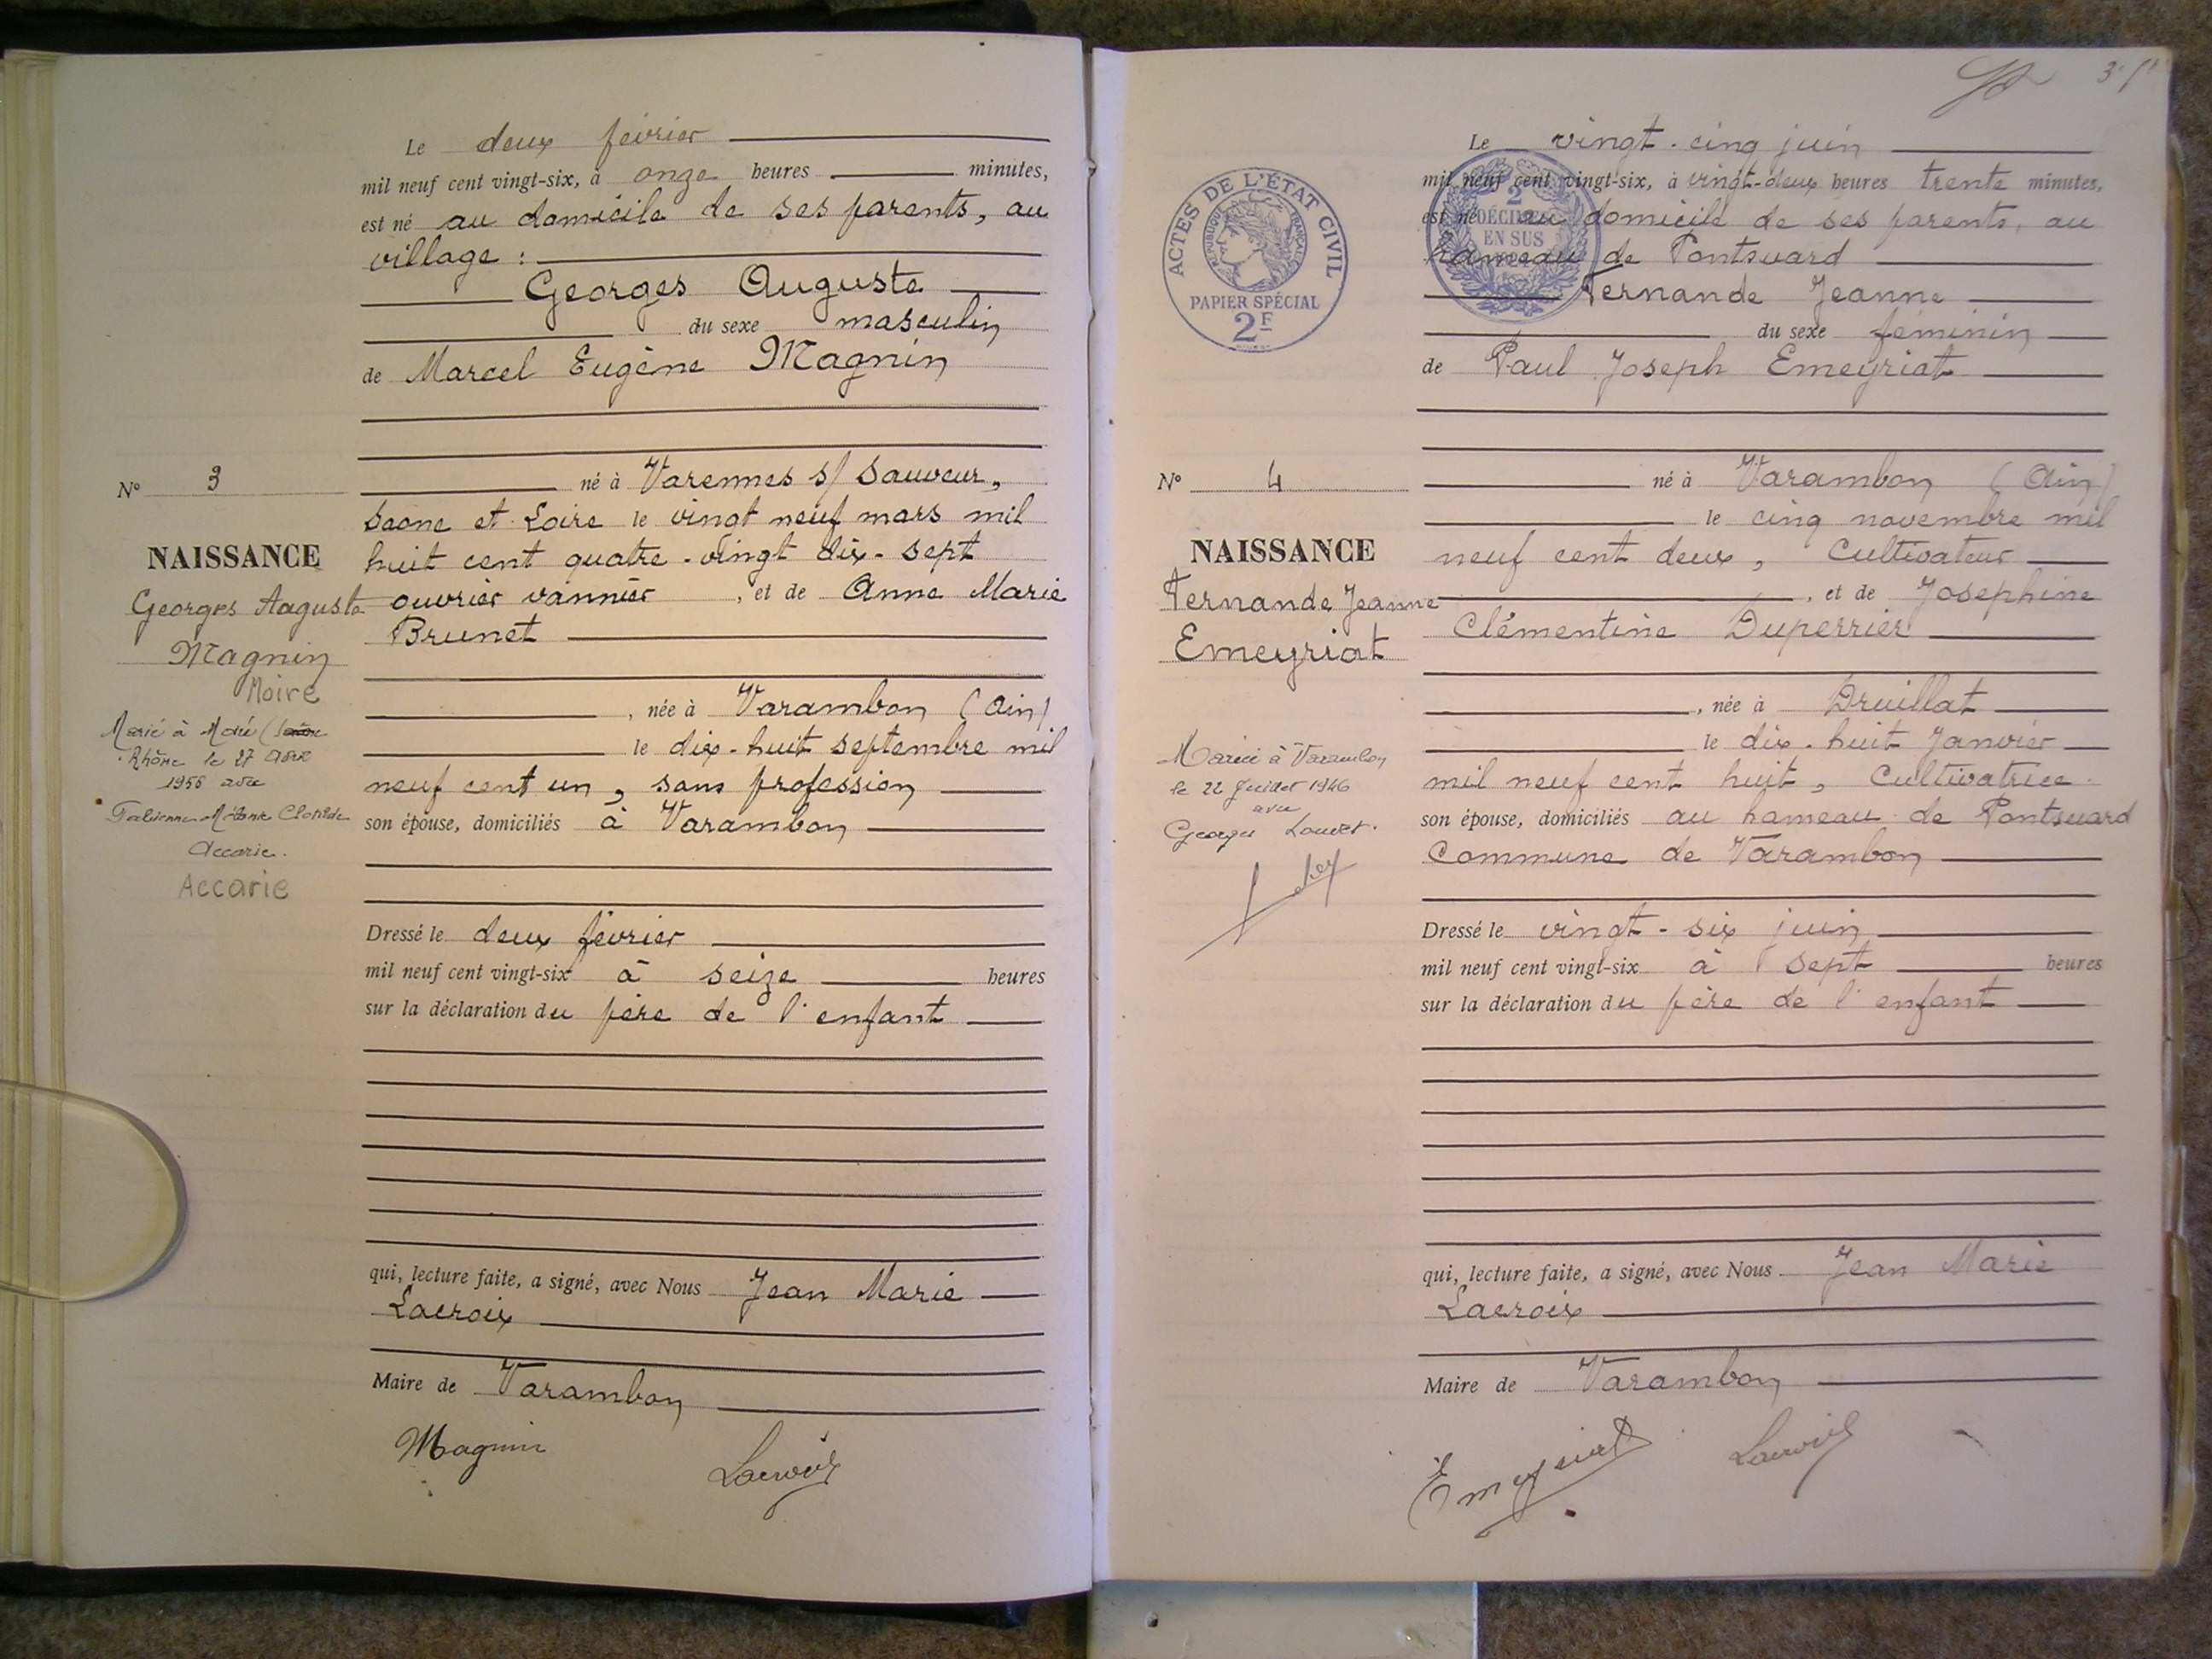 Le deux février
mil neuf cent vingt-six, à onze heures minutes,
est né au domicile de ses parents, au
village :
Georges Auguste
du sexe masculin
de Marcel Eugène Magnin
né à Varennes s/ Sauveur,
Saone et Loire le vingt neuf mars mil
huit cent quatre-vingt dix-sept
ouvrier vannier, et de Anne Marie
Brunet
, née à Varambon (Ain)
le dix-huit septembre mil
neuf cent un, sans profession
son épouse, domiciliés à Varambon
Dressé le deux février
mil neuf cent vingt-six à seize heures
sur la déclaration du père de l'enfant
qui, lecture faite, a signé, avec Nous Jean Marie
Lacroix
Maire de Varambon
Magnin Lacroix
N° 3
NAISSANCE
Georges Auguste
Magnin
Moiré
Marié à Moiré (
Rhône le 27
avec
Clotilde
Accarie.
Accarie
3
Le vingt-cinq juin
mil neuf cent vingt-six, à vingt-deux heures trente minutes,
est né au domicile de ses parents, au
hameau de Pontsuard
Fernande Jeanne
du sexe féminin
de Paul Joseph Emeyriat
né à Varambon (Ain)
le cinq novembre mil
neuf cent deux, Cultivateur
, et de Josephine
Clémentine Duperrier
, née à Druillat
le dix-huit Janvier
mil neuf cent huit, Cultivatrice
son épouse, domiciliés au hameau de Pontsuard
Commune de Varambon
Dressé le vingt-six juin
mil neuf cent vingt-six à sept heures
sur la déclaration du père de l'enfant
qui, lecture faite, a signé, avec Nous Jean Marie
Lacroix
Maire de Varambon
Emeyriat Lacroix
ACTES DE L'ÉTAT CIVIL
RÉPUBLIQUE FRANÇAISE
PAPIER SPÉCIAL
2F
2
DÉCIMES
EN SUS
N° 4
NAISSANCE
Fernande Jeanne
Emeyriat
Mariée à Varambon
le 22 Juillet 1946
avec
Georges Louvet.